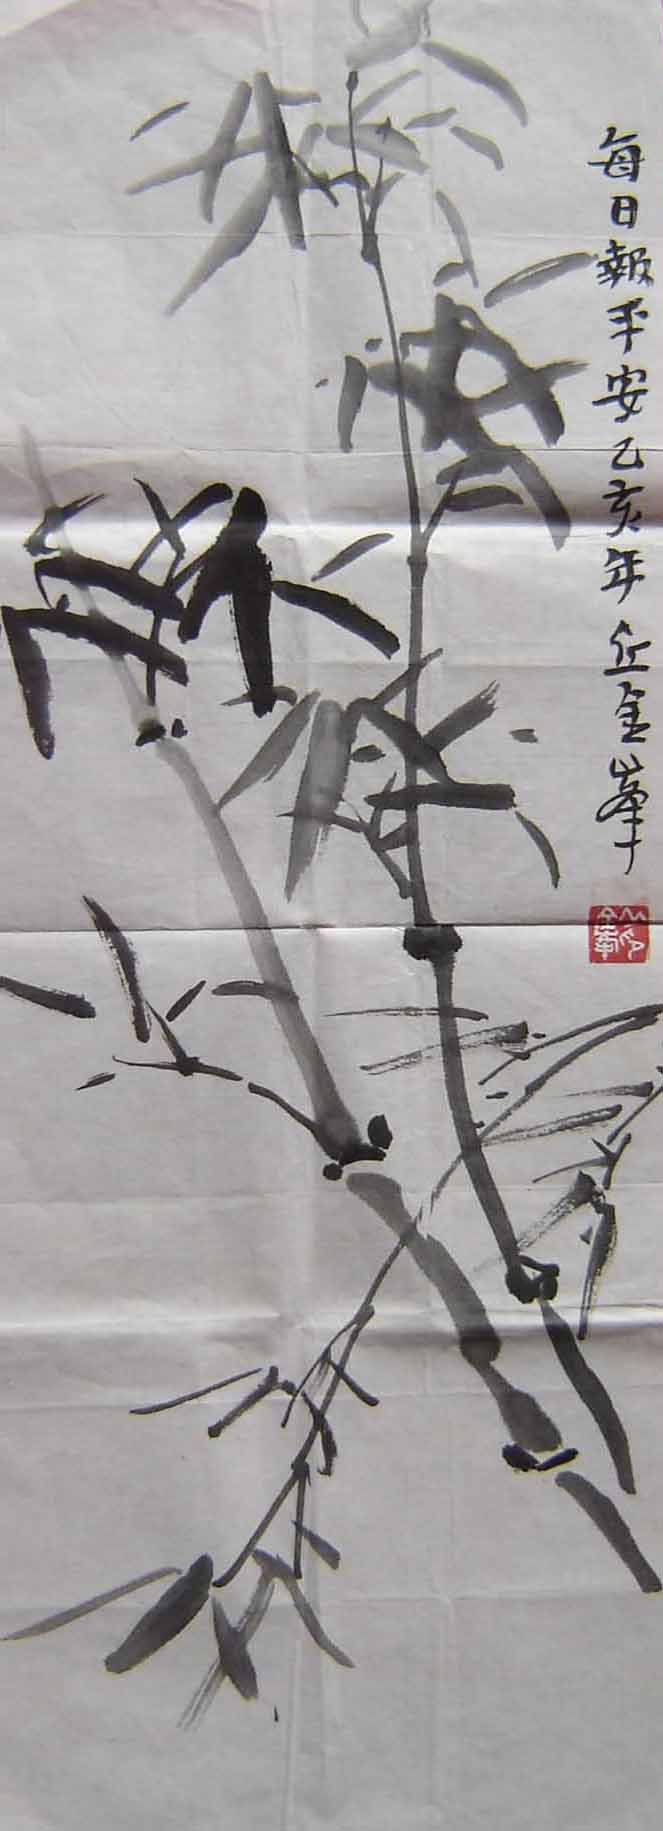 每日報平安乙亥年丘金峯